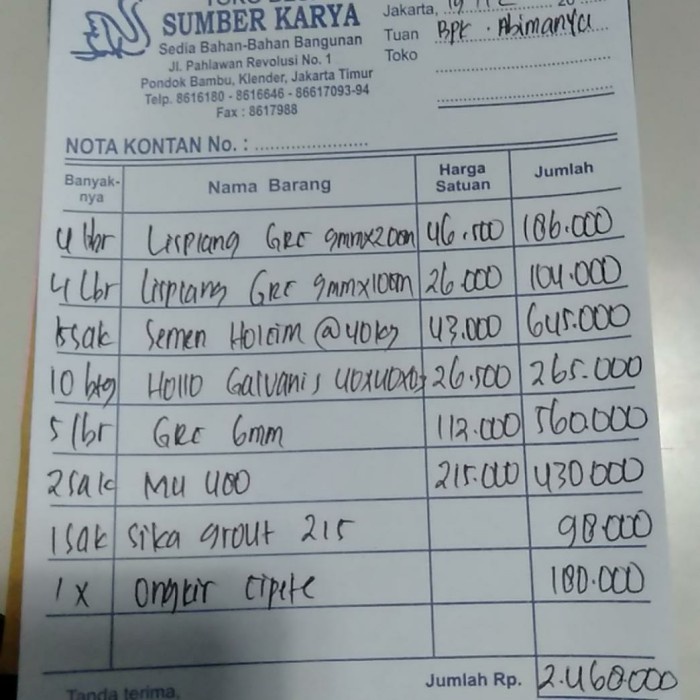 SUMBER KARYA
Sedia Bahan-Bahan Bangunan
Jl. Pahlawan Revolusi No. 1
Pondok Bambu, Klender, Jakarta Timur
Telp. 8616180 - 8616646 - 86617093-94
Fax : 8617988
Jakarta, 19
Tuan Bpk. Abimanyu
Toko
NOTA KONTAN No. :
Banyak-nya Nama Barang Harga Satuan Jumlah
4 lbr Lisplang GRC 9mmx20cm 46.500 186.000
4 Lbr Lisplang GRC 9mmx10cm 26.000 104.000
15sak Semen Holcim @40kg 43.000 645.000
10 btg Hollo Galvanis 40x40x0, 26.500 265.000
5 lbr GRC 6mm 112.000 560.000
2sak MU 400 215.000 430000
1sak sika grout 215 98.000
1x ongkir cipete 180.000
Jumlah Rp. 2.468.000
Tanda terima,